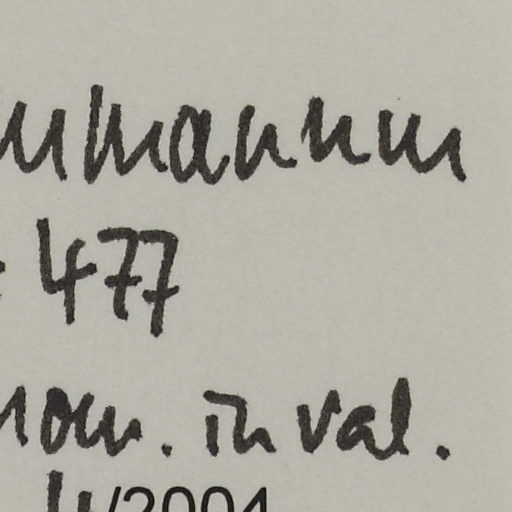 umannum
: 477
nom. inval.
4/2004